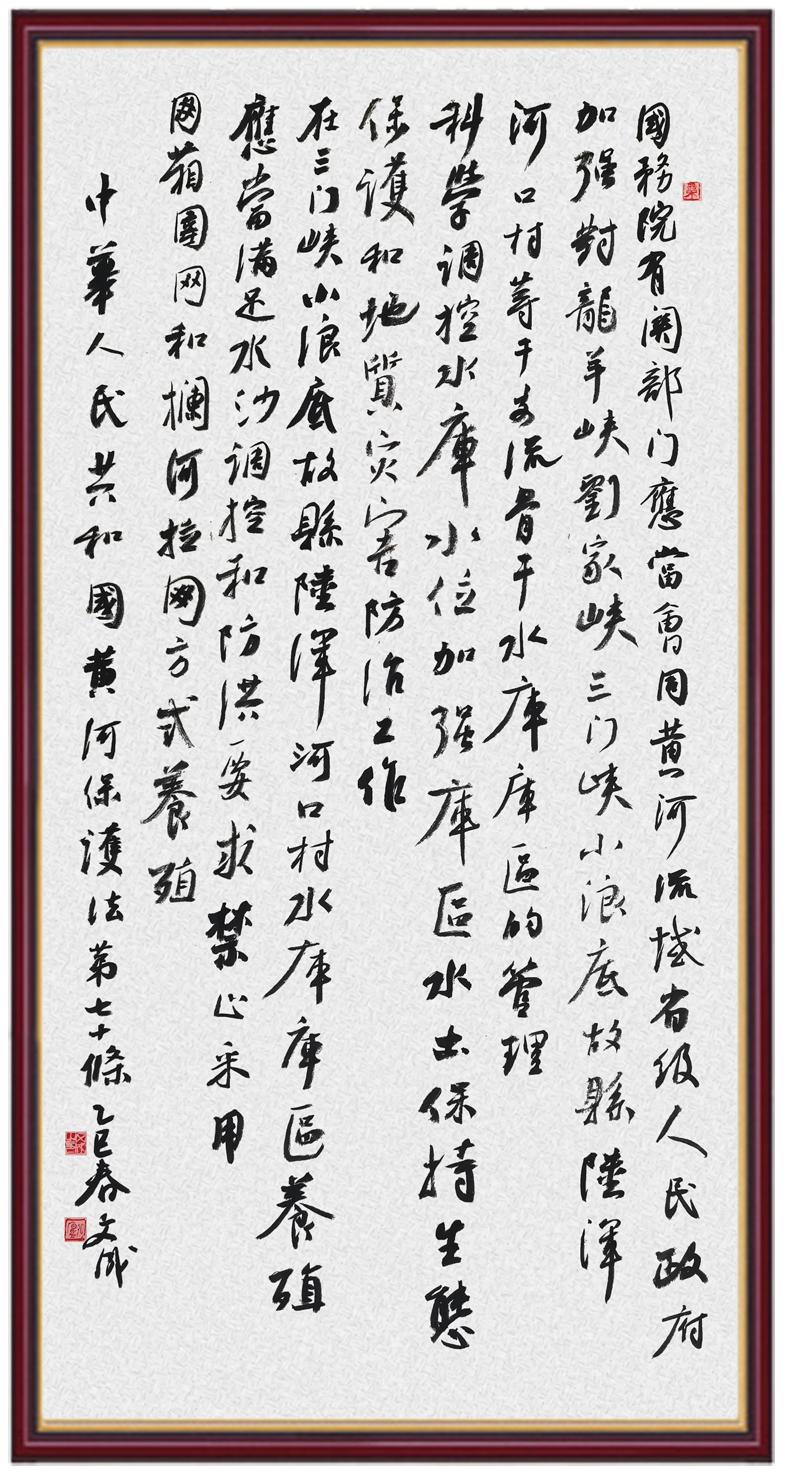 國務院有関部门應當會同黄河流域省级人民政府
加强對龍羊峡劉家峡三门峡小浪底故縣陸渾
河口村等干支流骨干水庫庫區的管理
科學调控水庫水位加强庫區水土保持生態
保護和地質灾害防治工作
在三门峡小浪底故縣陸渾河口村水庫庫區養殖
應當满足水沙调控和防洪要求禁止采用
网箱圍网和攔河拉网方式養殖
中華人民共和國黄河保護法第七十條乙巳春文成